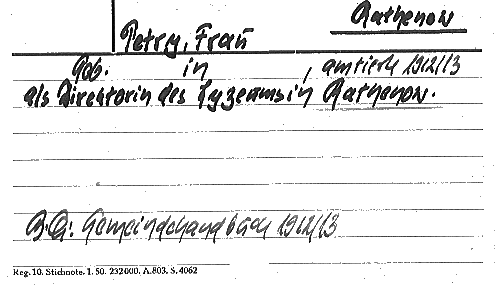 Rathenow
Petry, Frau
Geb. in , amtiert 1912/13
als Direktorin des Lyzeums in Rathenow.
B.Q: Gemeindehandbuch 1912/13
Reg. 10. Stichnote. 1. 50. 232000. A.803. S. 4062